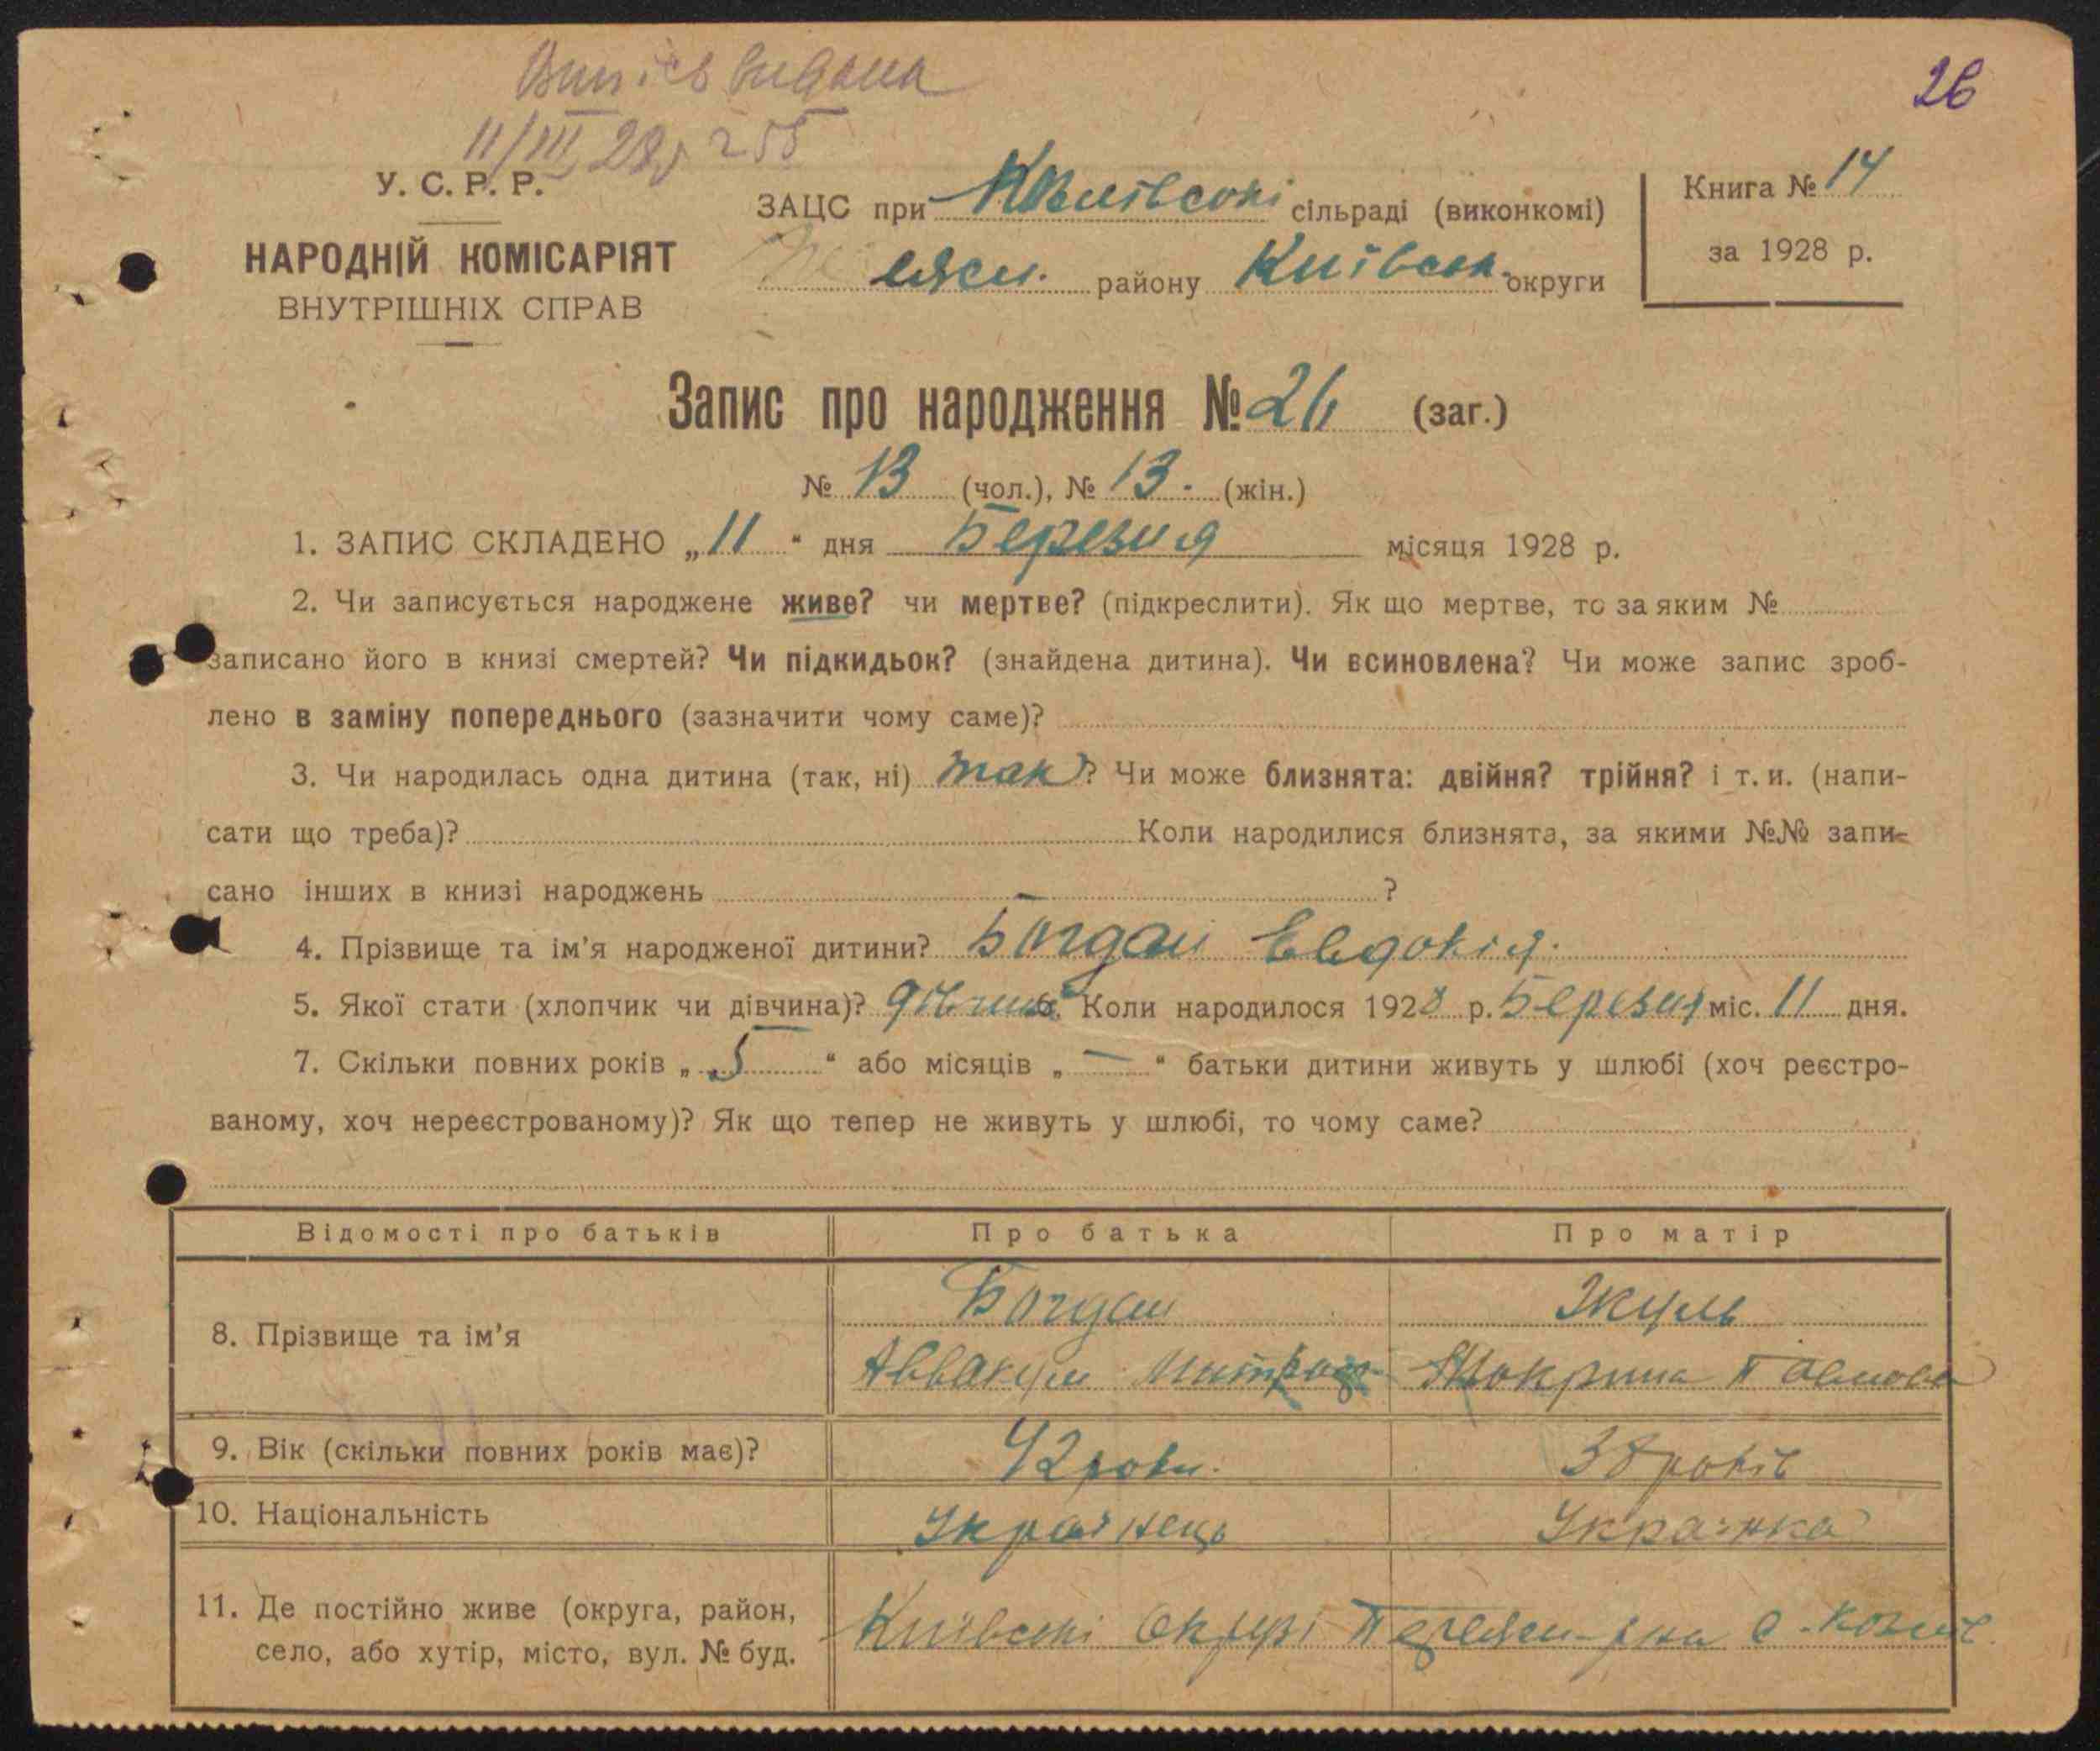 Випись видана
26
11/III 28 р 255
У. С. Р. Р.
НАРОДНІЙ КОМІСАРІЯТ
ВНУТРІШНІХ СПРАВ
ЗАЦС при сільраді (виконкомі)
району Київськ. округи
Книга № 14
за 1928 р.
Запис про народження № 26 (заг.)
№ 13 (чол.), № 13. (жін.)
1. ЗАПИС СКЛАДЕНО „11“ дня Березня місяця 1928 р.
2. Чи записується народжене живе? чи мертве? (підкреслити). Як що мертве, то за яким №
записано його в книзі смертей? Чи підкидьок? (знайдена дитина). Чи всиновлена? Чи може запис зроб-
лено в заміну попереднього (зазначити чому саме)?
3. Чи народилась одна дитина (так, ні) так? Чи може близнята: двійня? трійня? і т. и. (напи-
сати що треба)? Коли народилися близнята, за якими №№ запи-
сано інших в книзі народжень ?
4. Прізвище та ім’я народженої дитини? Богдан Евдокія.
5. Якої стати (хлопчик чи дівчина)? дівчина 6. Коли народилося 1928 р. Березня міс. 11 дня.
7. Скільки повних років „5“ або місяців „—“ батьки дитини живуть у шлюбі (хоч реєстро-
ваному, хоч нереєстрованому)? Як що тепер не живуть у шлюбі, то чому саме?
Відомості про батьків Про батька Про матір
8. Прізвище та ім’я
Богдан
Аввакум
Мокрина Павлова
9. Вік (скільки повних років має)? 42 роки. 38 років
10. Національність Українець Українка
11. Де постійно живе (округа, район,
село, або хутір, місто, вул. № буд.
Київські Окрузі